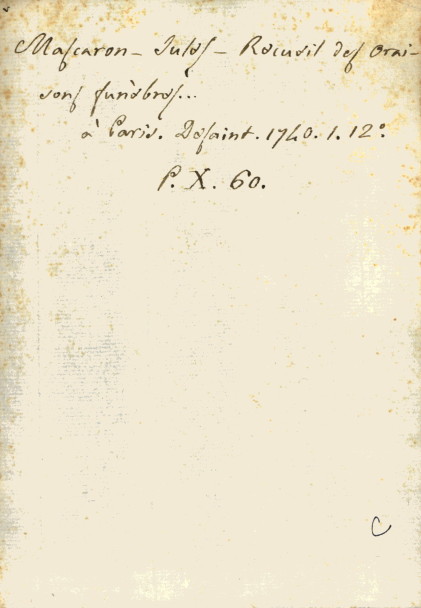 Mascaron - Jules - Recueil des Orai-
sons funèbres...
à Paris. Desaint. 1740. 1. 12°.
P. X. 60.
C